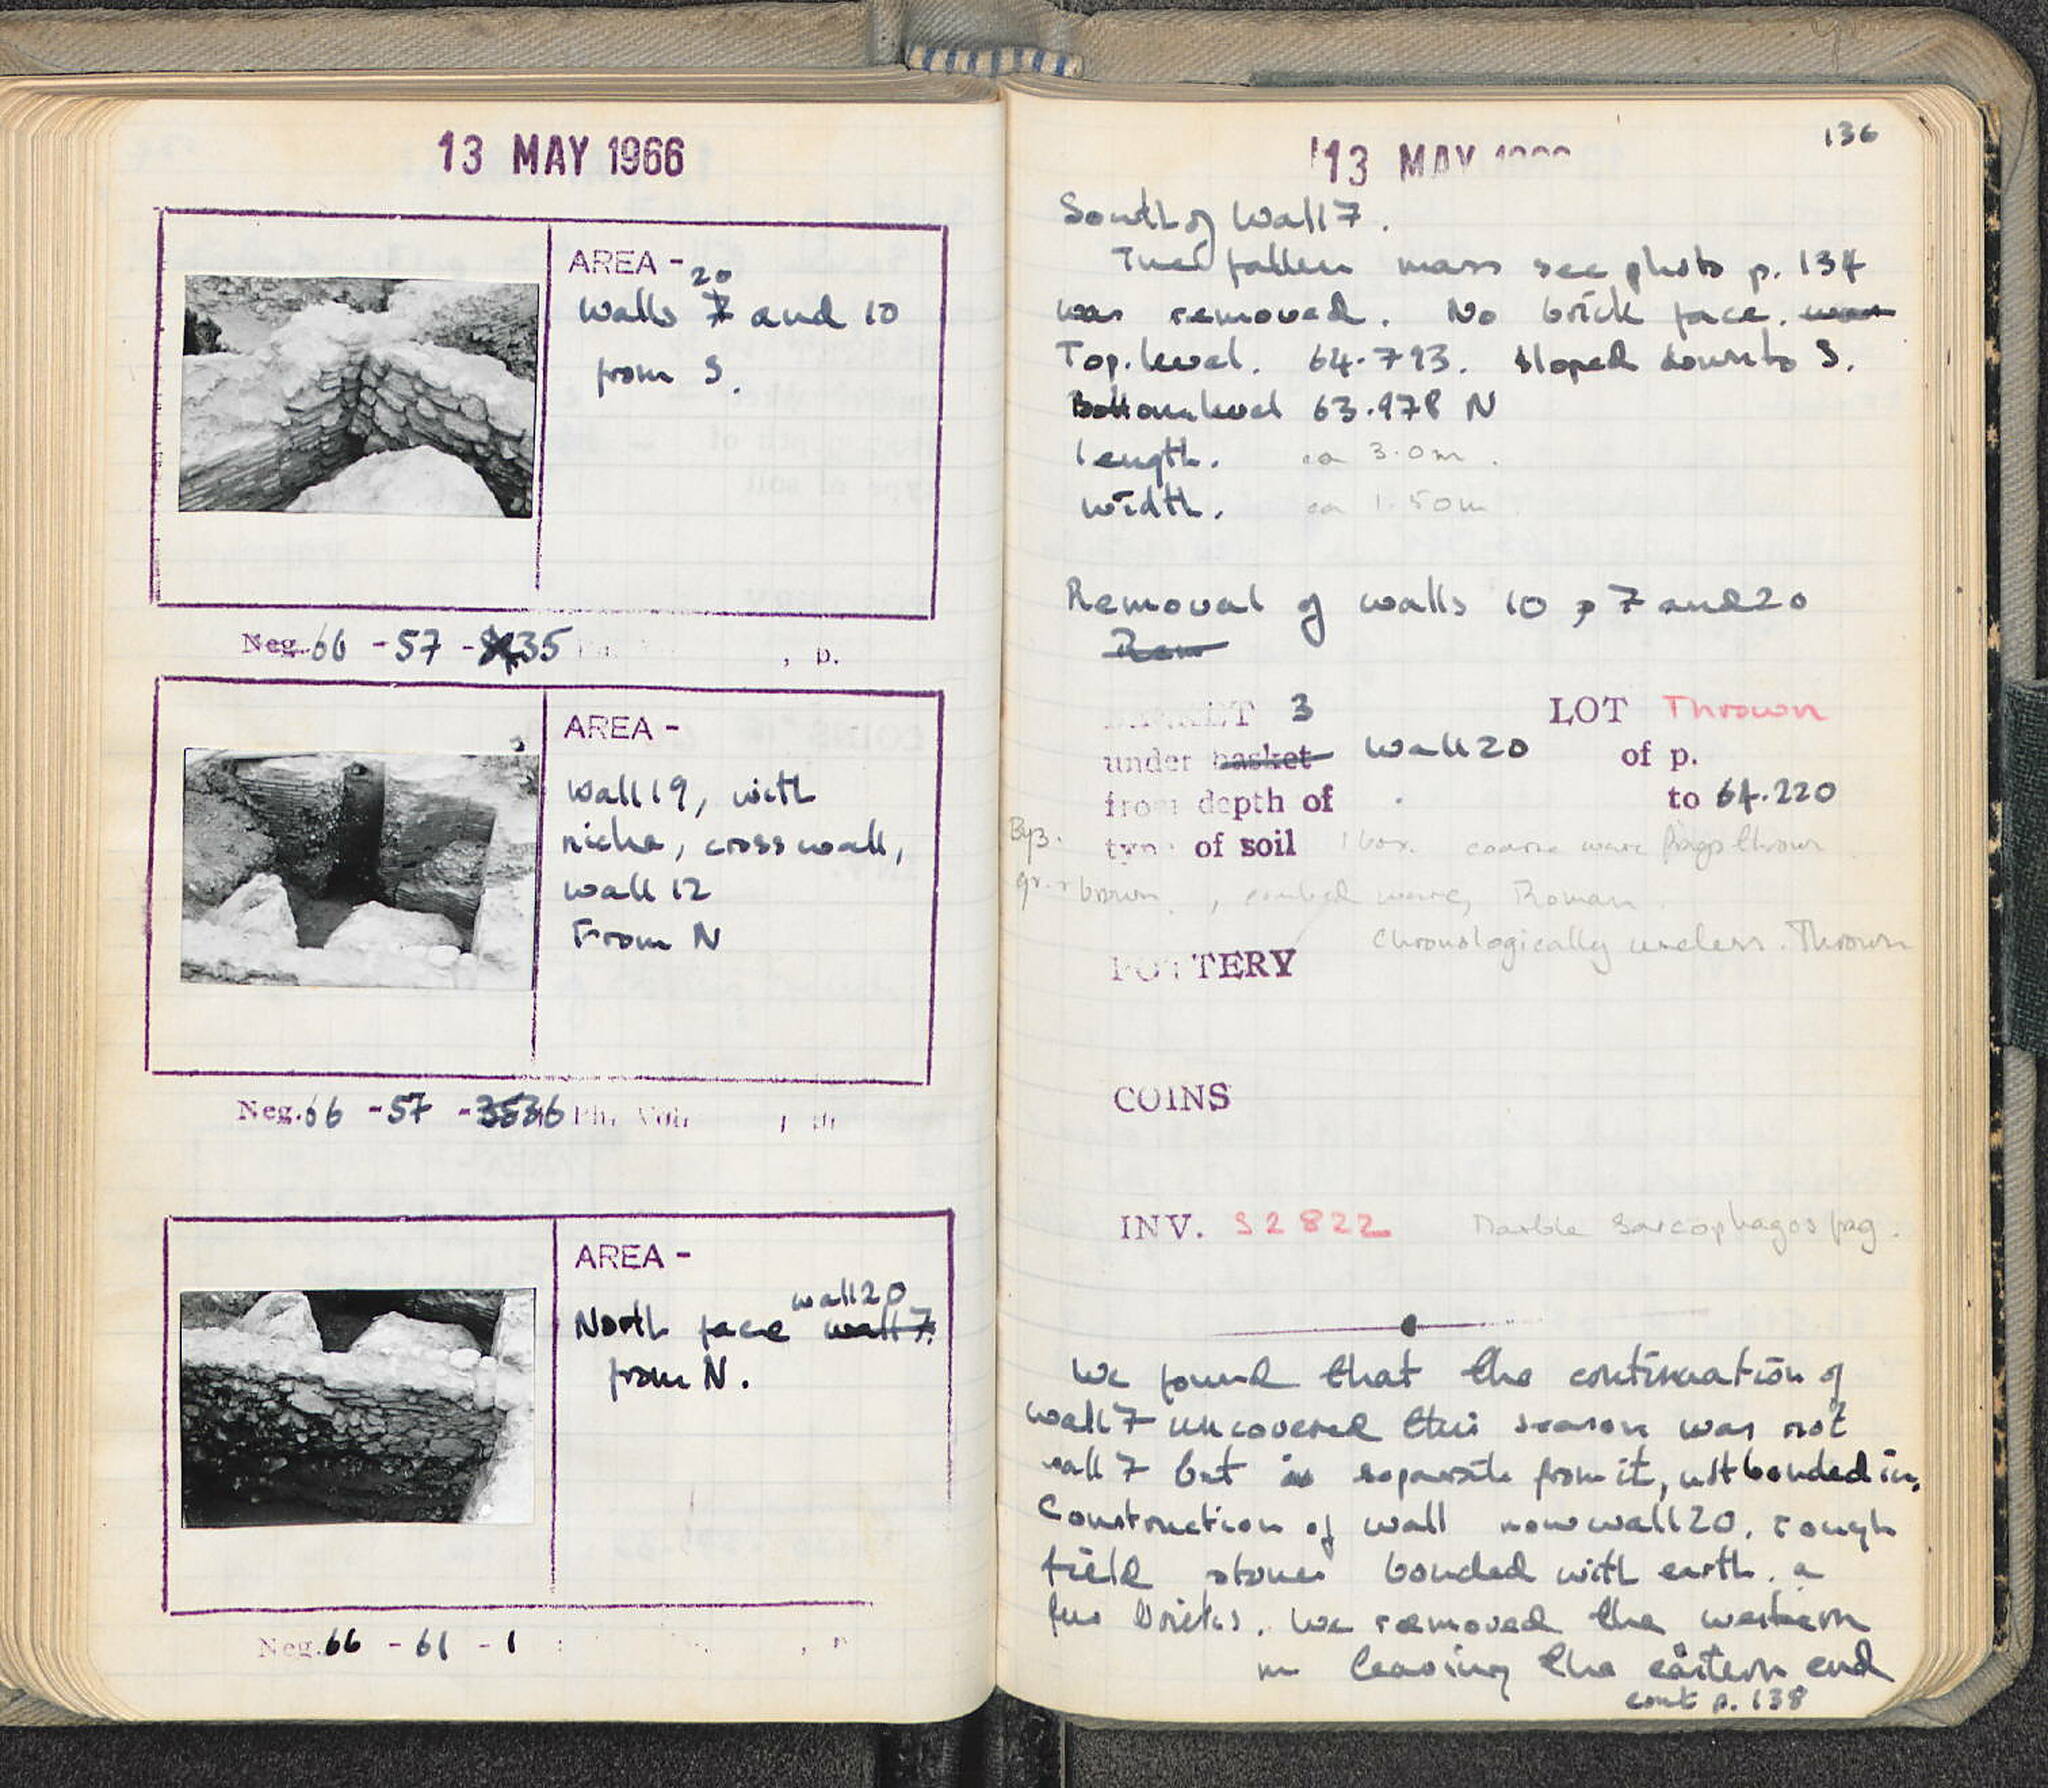 13 MAY 1966
AREA -
20
walls 7 and 10
from S.
Neg. 66 - 57 - 35 , p.
AREA -
Wall 19, with
niche, cross wall,
wall 12
From N
Neg. 66 - 57 - 3536 Ph. Vol. , p.
AREA -
wall 20
North face wall 7.
from N.
Neg. 66 - 61 - 1
136
13 MAY
South of Wall 7.
fallen mass see photo p. 134
was removed. No brick face. was
Top. level. 64.793. sloped down to S.
Bottom level 63.978 N
length. ca 3.0m.
width. ca 1.50m
Removal of walls 10, 7 and 20
Rem
BASKET 3 LOT Thrown
under basket Wall 20 of p.
from depth of . to 64.220
Byz. type of soil 1 box. coarse ware frags thrown
brown, combed ware, Roman.
Chronologically useless. Thrown
POTTERY
COINS
INV. S2822 Marble Sarcophagos frag.
We found that the continuation of
wall 7 uncovered this season was not
wall 7 but is separate from it, not bonded in.
Construction of wall now wall 20, rough
field stones bonded with earth, a
few bricks. We removed the western
m leaving the eastern end
cont p. 138